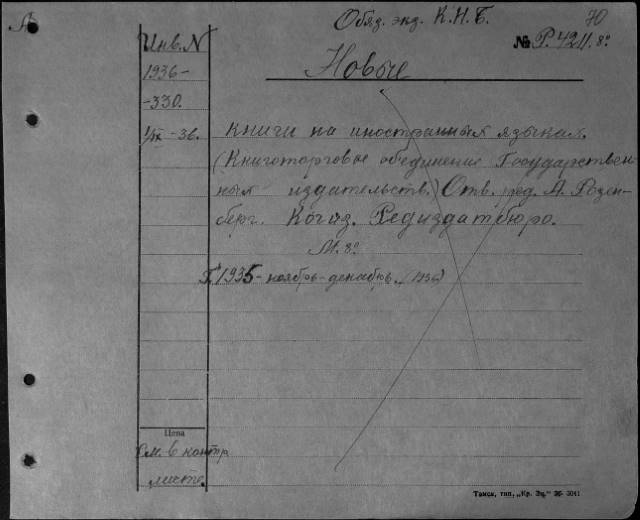 Обяз. экз. К.Н.Б. 70
Инв. N
№ Р.4211.8º
Новые
1936-
-330.
1/IX-36.
книги на иностранных языках.
(Книготорговое объединение Государствен-
ных издательств.) Отв. ред. А. Розен-
берг. Когиз. Редиздатбюро.
М. 8º
1935-ноябрь-декабрь. (1936)
Цена
См. в контр
листе.
Томск, тип. „Кр. Зн." 36 3041